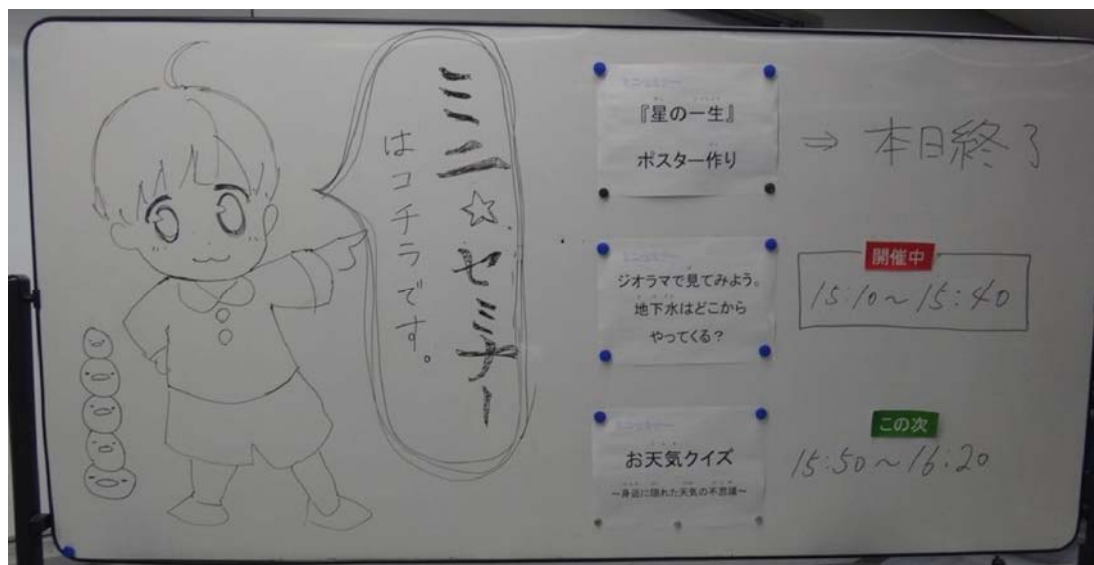 ミニ☆セミナー
はコチラです。
ミニセミナー
『星の一生』
ポスター作り
⇒ 本日終了
ミニセミナー
ジオラマで見てみよう。
地下水はどこから
やってくる？
開催中
15:10～15:40
ミニセミナー
お天気クイズ
～身近に隠れた天気の不思議～
この次
15:50～16:20